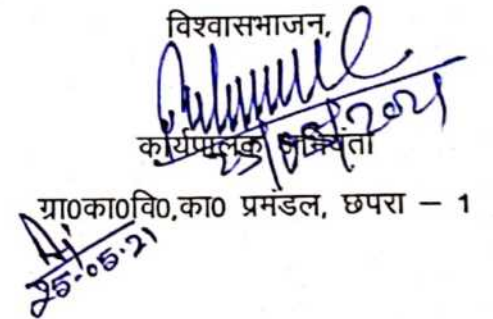 विश्वासभाजन,
कार्यपालक अभियंता
ग्रा0का0वि0,का0 प्रमंडल, छपरा – 1
25-05-21